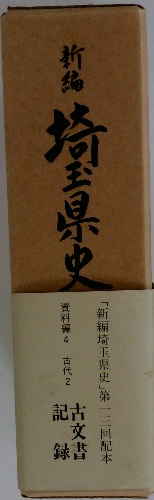 新編
埼玉県史
「新編埼玉県史」第一三回配本
資料編4 古代2
古文書
記録